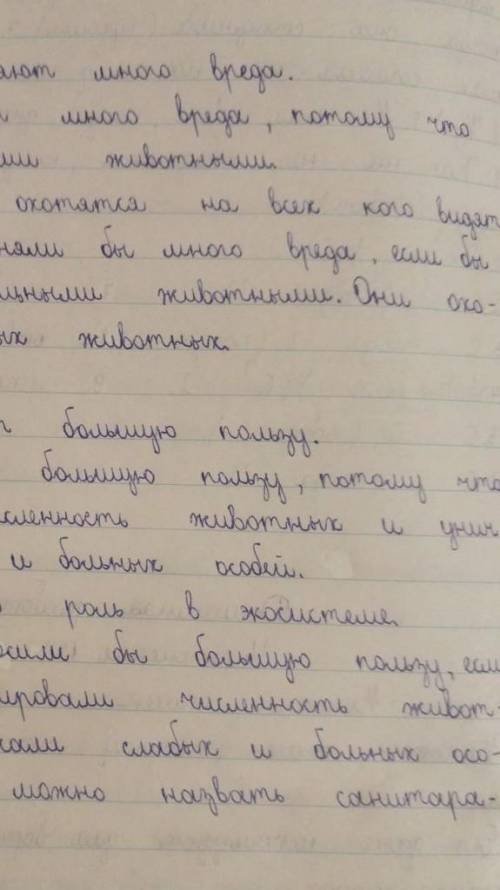 ают много вреда.
много вреда, потому что
ми животными.
охотятся на всех кого видят
няли бы много вреда, если бы
льными животными. Они охо-
ых животных.
большую пользу.
большую пользу, потому что
сленность животных и унич
и больных особей.
роль в экосистеме.
осили бы большую пользу, если
ировали численность живот-
жали слабых и больных осо-
можно назвать санитара-